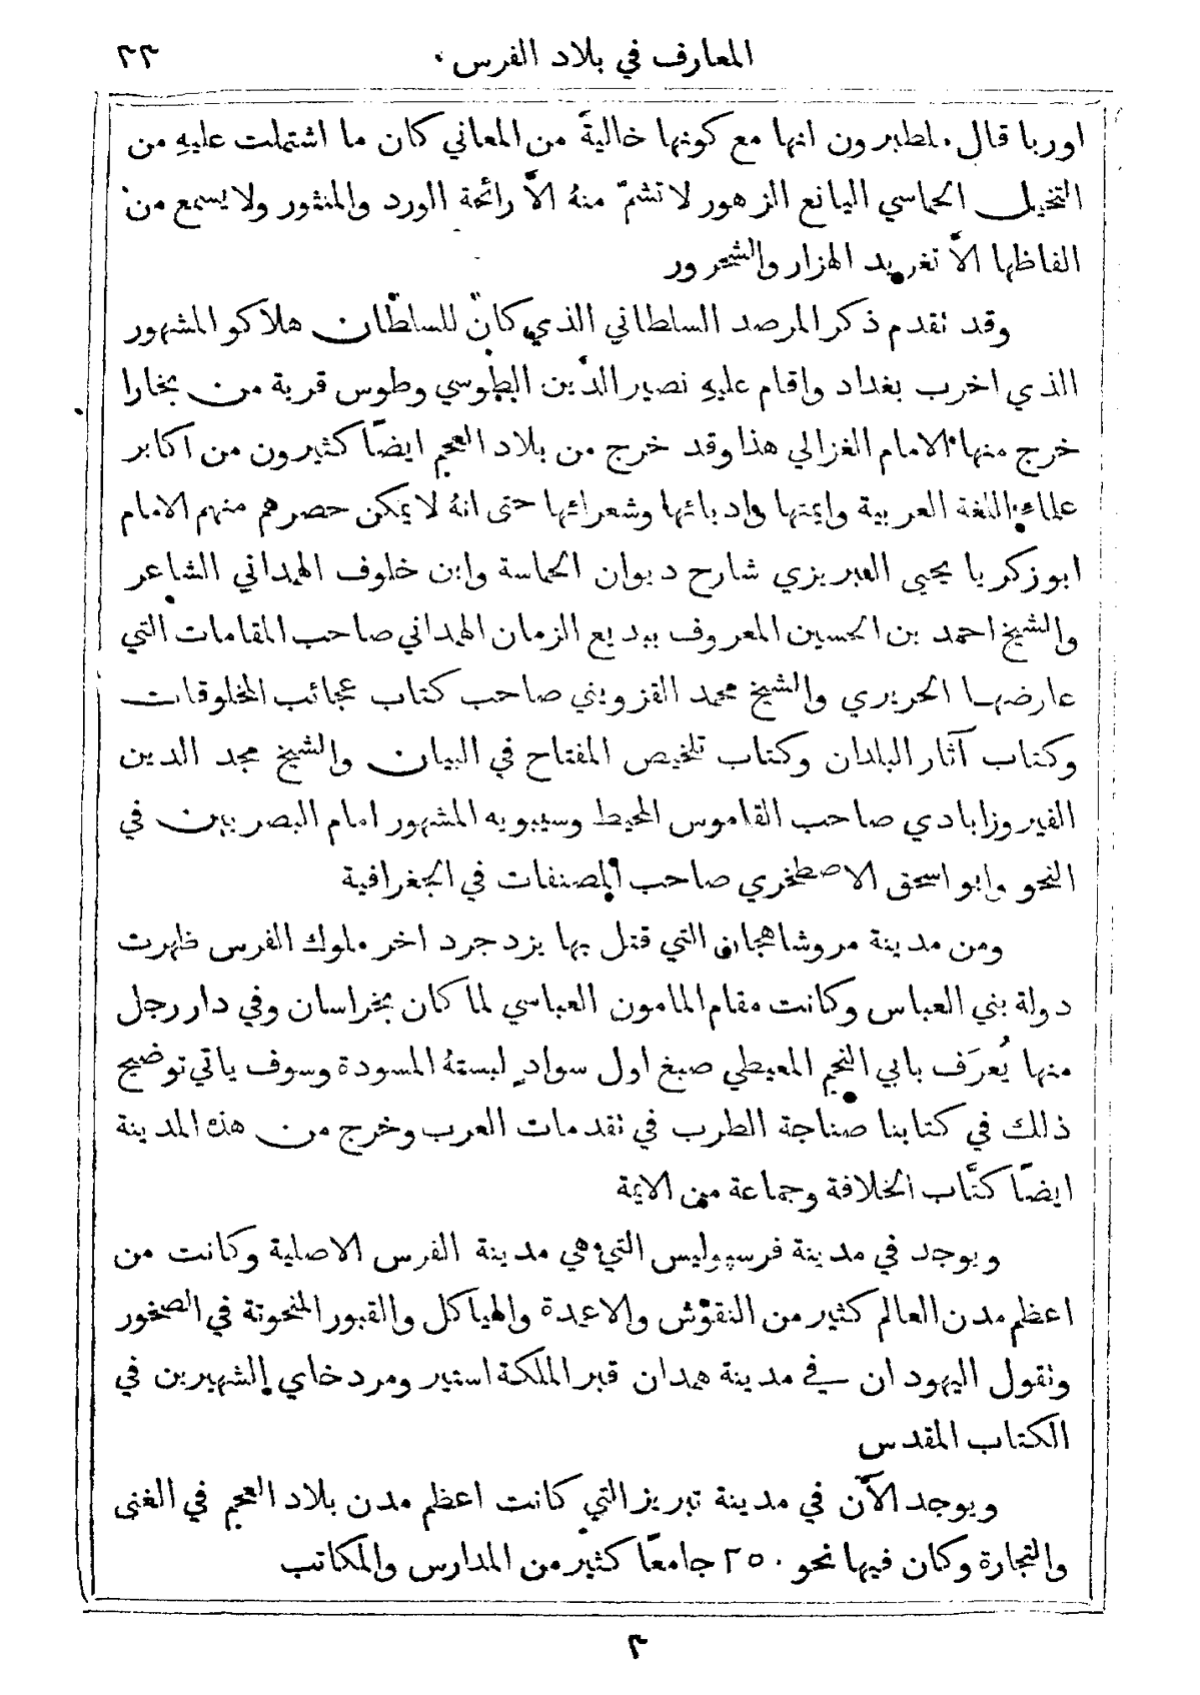 المعارف في بلاد الفرس ٣٣
اوربا قال ملطبرون انها مع كونها خاليةً من المعاني كان ما اشتملت عليهِ من
التخيل الحماسي اليانع الزهور لا تشمّ منهُ الاَّ رائحة الورد والمنثور ولا يسمع من
الفاظها الاَّ تغريد الهزار والشحرور
وقد نقدم ذكر المرصد السلطاني الذي كان للسلطان هلاكو المشهور
الذي اخرب بغداد واقام عليهِ نصير الدين الطوسي وطوس قرية من بخارا
خرج منها الامام الغزالي هذا وقد خرج من بلاد العجم ايضًا كثيرون من اكابر
علماء اللغة العربية وايمتها وادبائها وشعرائها حتى انهُ لا يمكن حصرهم منهم الامام
ابو زكريا يحيى التبريزي شارح ديوان الحماسة وابن خلوف الهمداني الشاعر
والشيخ احمد بن الحسين المعروف ببديع الزمان الهمداني صاحب المقامات التي
عارضها الحريري والشيخ محمد القزويني صاحب كتاب عجائب المخلوقات
وكتاب آثار البلدان وكتاب تلخيص المفتاح في البيان والشيخ مجد الدين
الفيروزابادي صاحب القاموس المحيط وسيبويه المشهور امام البصريين في
النحو وابو اسحق الاصطخري صاحب المصنفات في الجغرافية
ومن مدينة مروشاهجان التي قتل بها يزدجرد اخر ملوك الفرس ظهرت
دولة بني العباس وكانت مقام المامون العباسي لما كان بخراسان وفي دار رجل
منها يُعرَف بابي النجم المعيطي صبغ اول سوادٍ لبستهُ المسودة وسوف ياتي توضيح
ذلك في كتابنا صناجة الطرب في نقدمات العرب وخرج من هذه المدينة
ايضًا كتَّاب الخلافة وجماعة من الايمة
ويوجد في مدينة فرسيوليس التي هي مدينة الفرس الاصلية وكانت من
اعظم مدن العالم كثير من النقوش والاعمدة والهياكل والقبور المنحوتة في الصخور
ونقول اليهود ان في مدينة همدان قبر الملكة استير ومردخاي الشهيرين في
الكتاب المقدس
ويوجد الآن في مدينة تبريز التي كانت اعظم مدن بلاد العجم في الغنى
والتجارة وكان فيها نحو ٢٥٠ جامعًا كثير من المدارس والمكاتب
٣